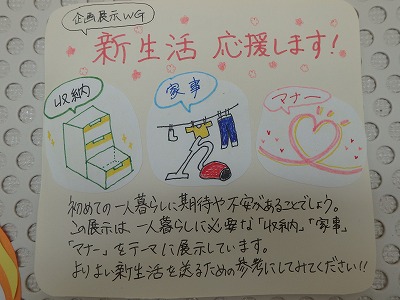 企画展示WG
新生活 応援します!
収納
家事
マナー
初めての一人暮らしに期待や不安があることでしょう。
この展示は、一人暮らしに必要な「収納」「家事」
「マナー」をテーマに展示しています。
よりよい新生活を送るための参考にしてみてください!!